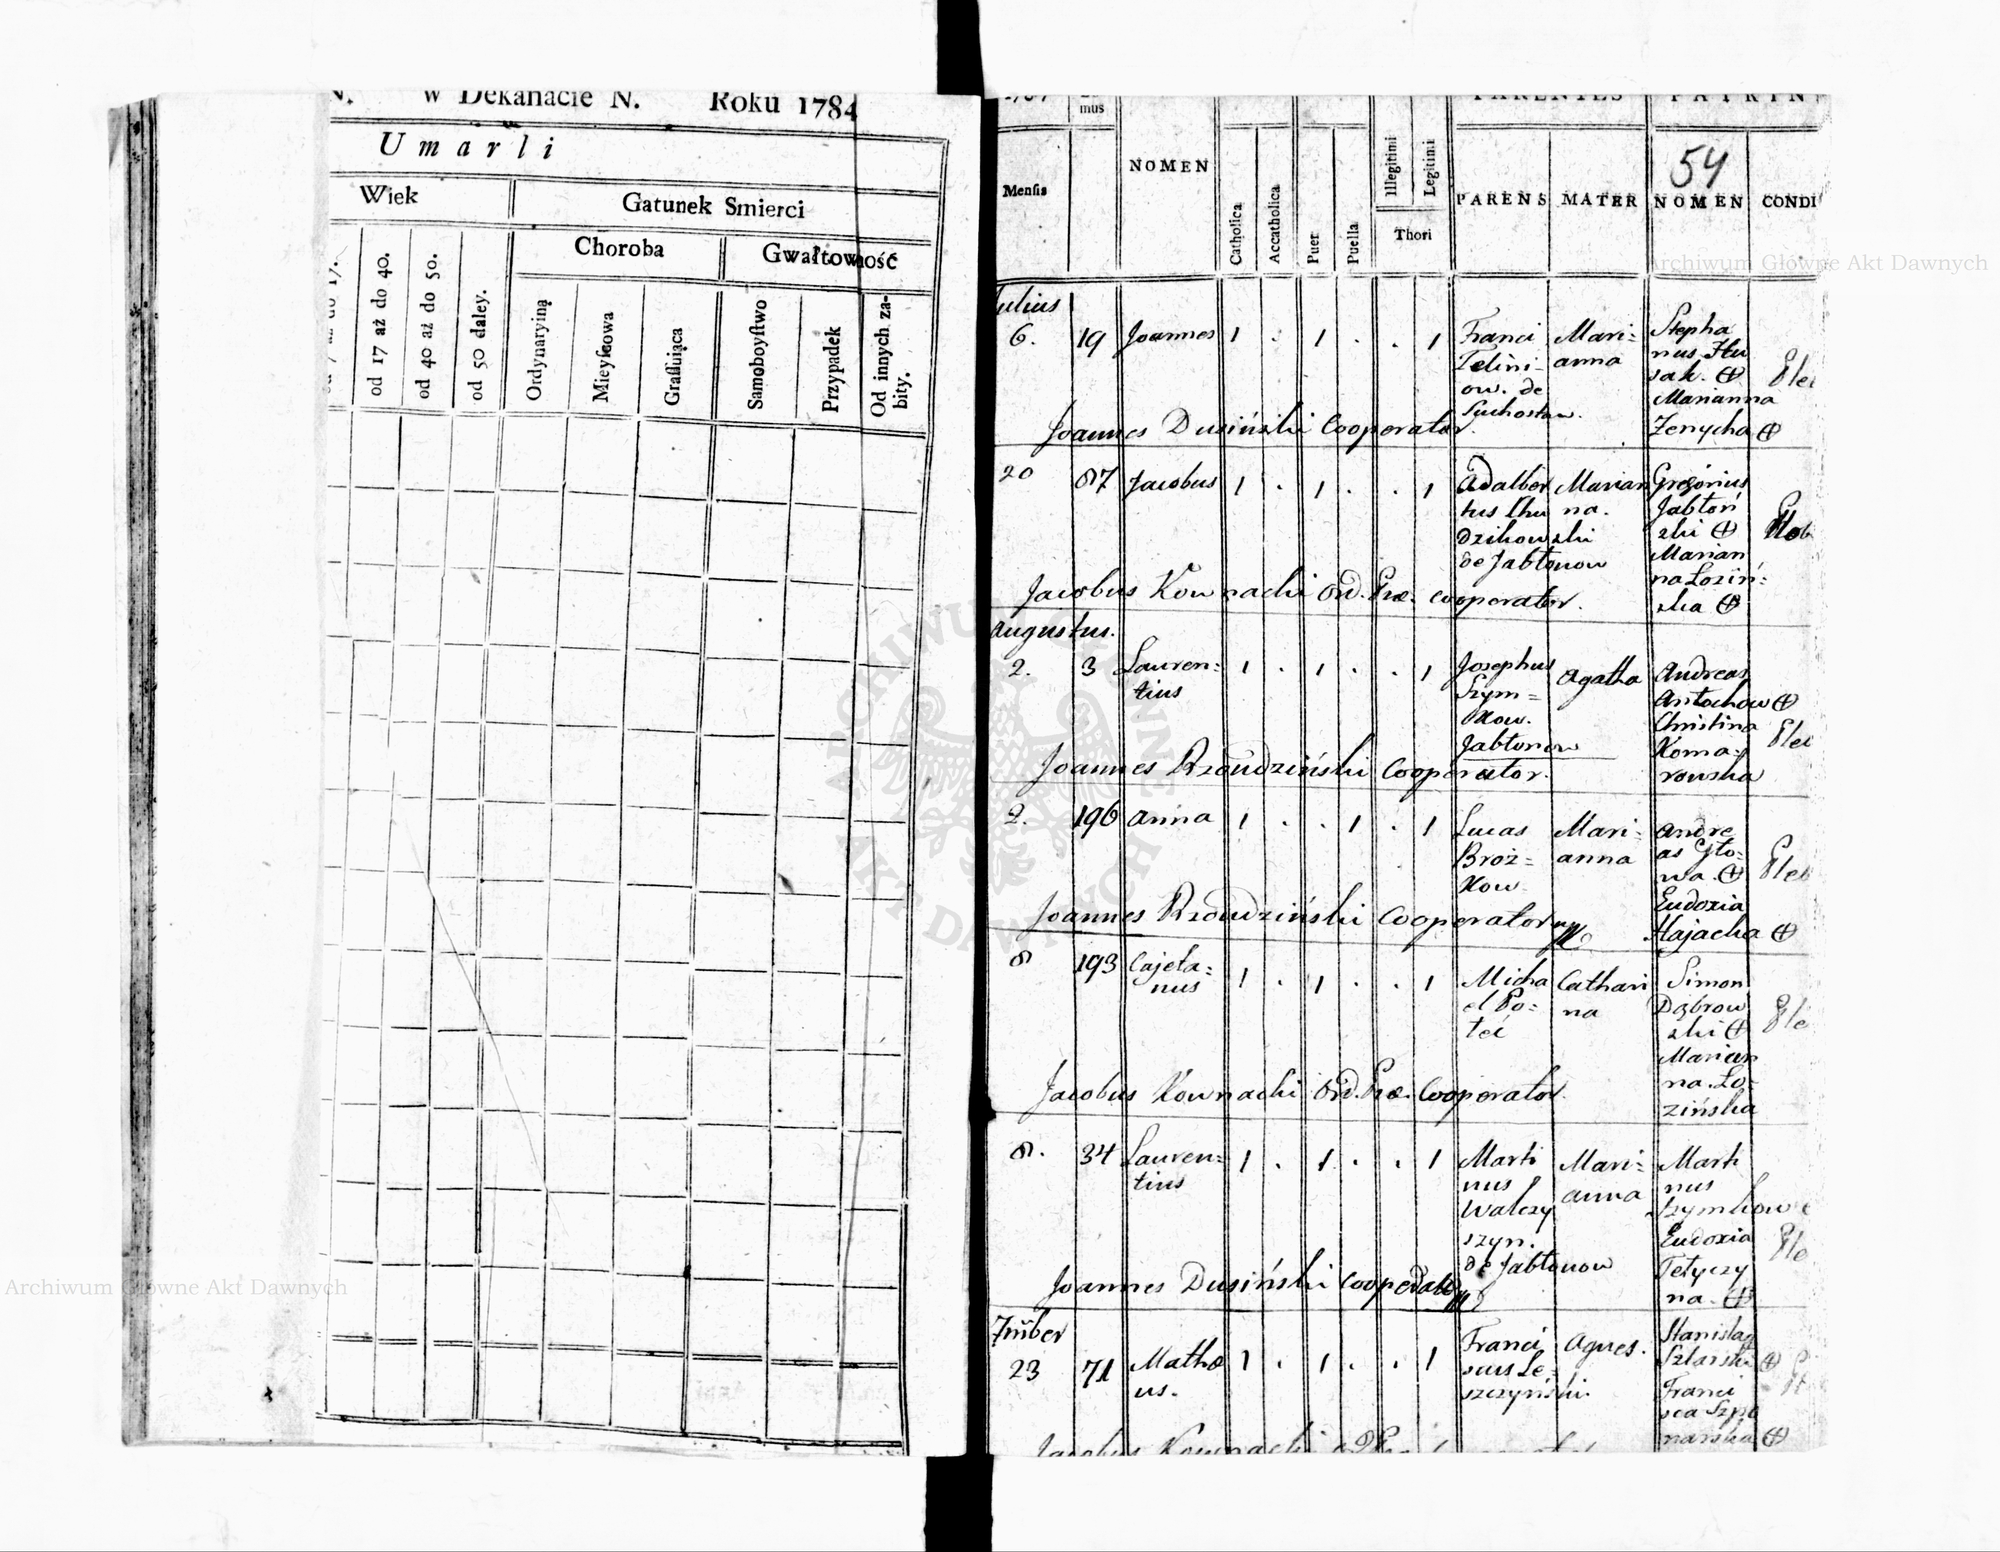 w Dekanacie N. Roku 1784
Umarli
Wiek
Gatunek Smierci
Choroba
Gwałtowność
od 17 aż do 40.
od 40 aż do 50.
od 50 daley.
Ordynaryiną
Mieyscowa
Graſſuiąca
Samoboyſtwo
Przypadek
Od innych za-
bity.
mus
PARENTES
PATRIN
Menſis
NOMEN
Catholica
Accatholica
Puer
Puella
Illegitimi
Legitimi
Thori
PARENS
MATER
54
NOMEN
CONDI
Julius
6. 19 Joannes 1 . 1 . . 1
Franci
ow. de
Suchostaw.
Mari-
anna
Stepha
nus Hu
sak. ⊕
Marianna
Zenycha ⊕
Joannes Dusiński Cooperator.
20 87 Jacobus 1 . 1 . . 1
Adalber
tus Chu
dzikowski
de Jabłonow
Marian
na.
Gregorius
Jabłoń
ski ⊕
Marian
na Łoziń:
ska ⊕
Jacobus Kownacki Ord. Præ. cooperator.
Augustus.
2. 3 Lauren:
tius 1 . 1 . . 1
Josephus
Szym=
kow.
Jabłonow
Agatha
Andreas
Antochow ⊕
Christina
Koma-
rowska
Joannes Rzondziński Cooperator.
2. 196 Anna 1 . . 1 . 1
Lucas
Broż=
kow
Mari:
anna
Andre
as Gło:
wa. ⊕
Eudoxia
Hajacha ⊕
Joannes Rzondziński Cooperator
8 193 Cajeta:
nus 1 . 1 . . 1
Micha
el Po:
teć
Cathari
na
Simon
Dąbrow
ski ⊕
Marian
na Ło-
zińska
Jacobus Kownacki Ord. Præ. Cooperator.
8. 34 Lauren:
tius 1 . 1 . . 1
Marti
nus
Walczy
szyn.
de Jabłonow
Mari:
anna
Marti
nus
Szymkow
Eudoxia
Tetyczy
na. ⊕
Joannes Dusiński cooperator
7mber
23 71 Mathæ
us. 1 . 1 . . 1
Franci
scus Le:
szczyński.
Agnes.
Stanislaq
Szlarski ⊕
Franci
sca Szpo
narska ⊕
Jacobus Kownacki
Archiwum Główne Akt Dawnych
Archiwum Główne Akt Dawnych
ARCHIWUM GŁÓWNE
AKT DAWNYCH